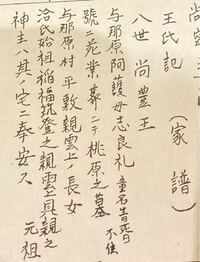 王氏記 (家譜)
八世 尚豊王
与那原阿護母志良礼 童名生死日不伝
號ニ花業 葬ニテ桃原之墓
与那原村平敷親雲上ノ長女
洽氏始祖稲福筑登之親雲上具親之
神主ハ其ノ宅ニ奉安ス 元祖